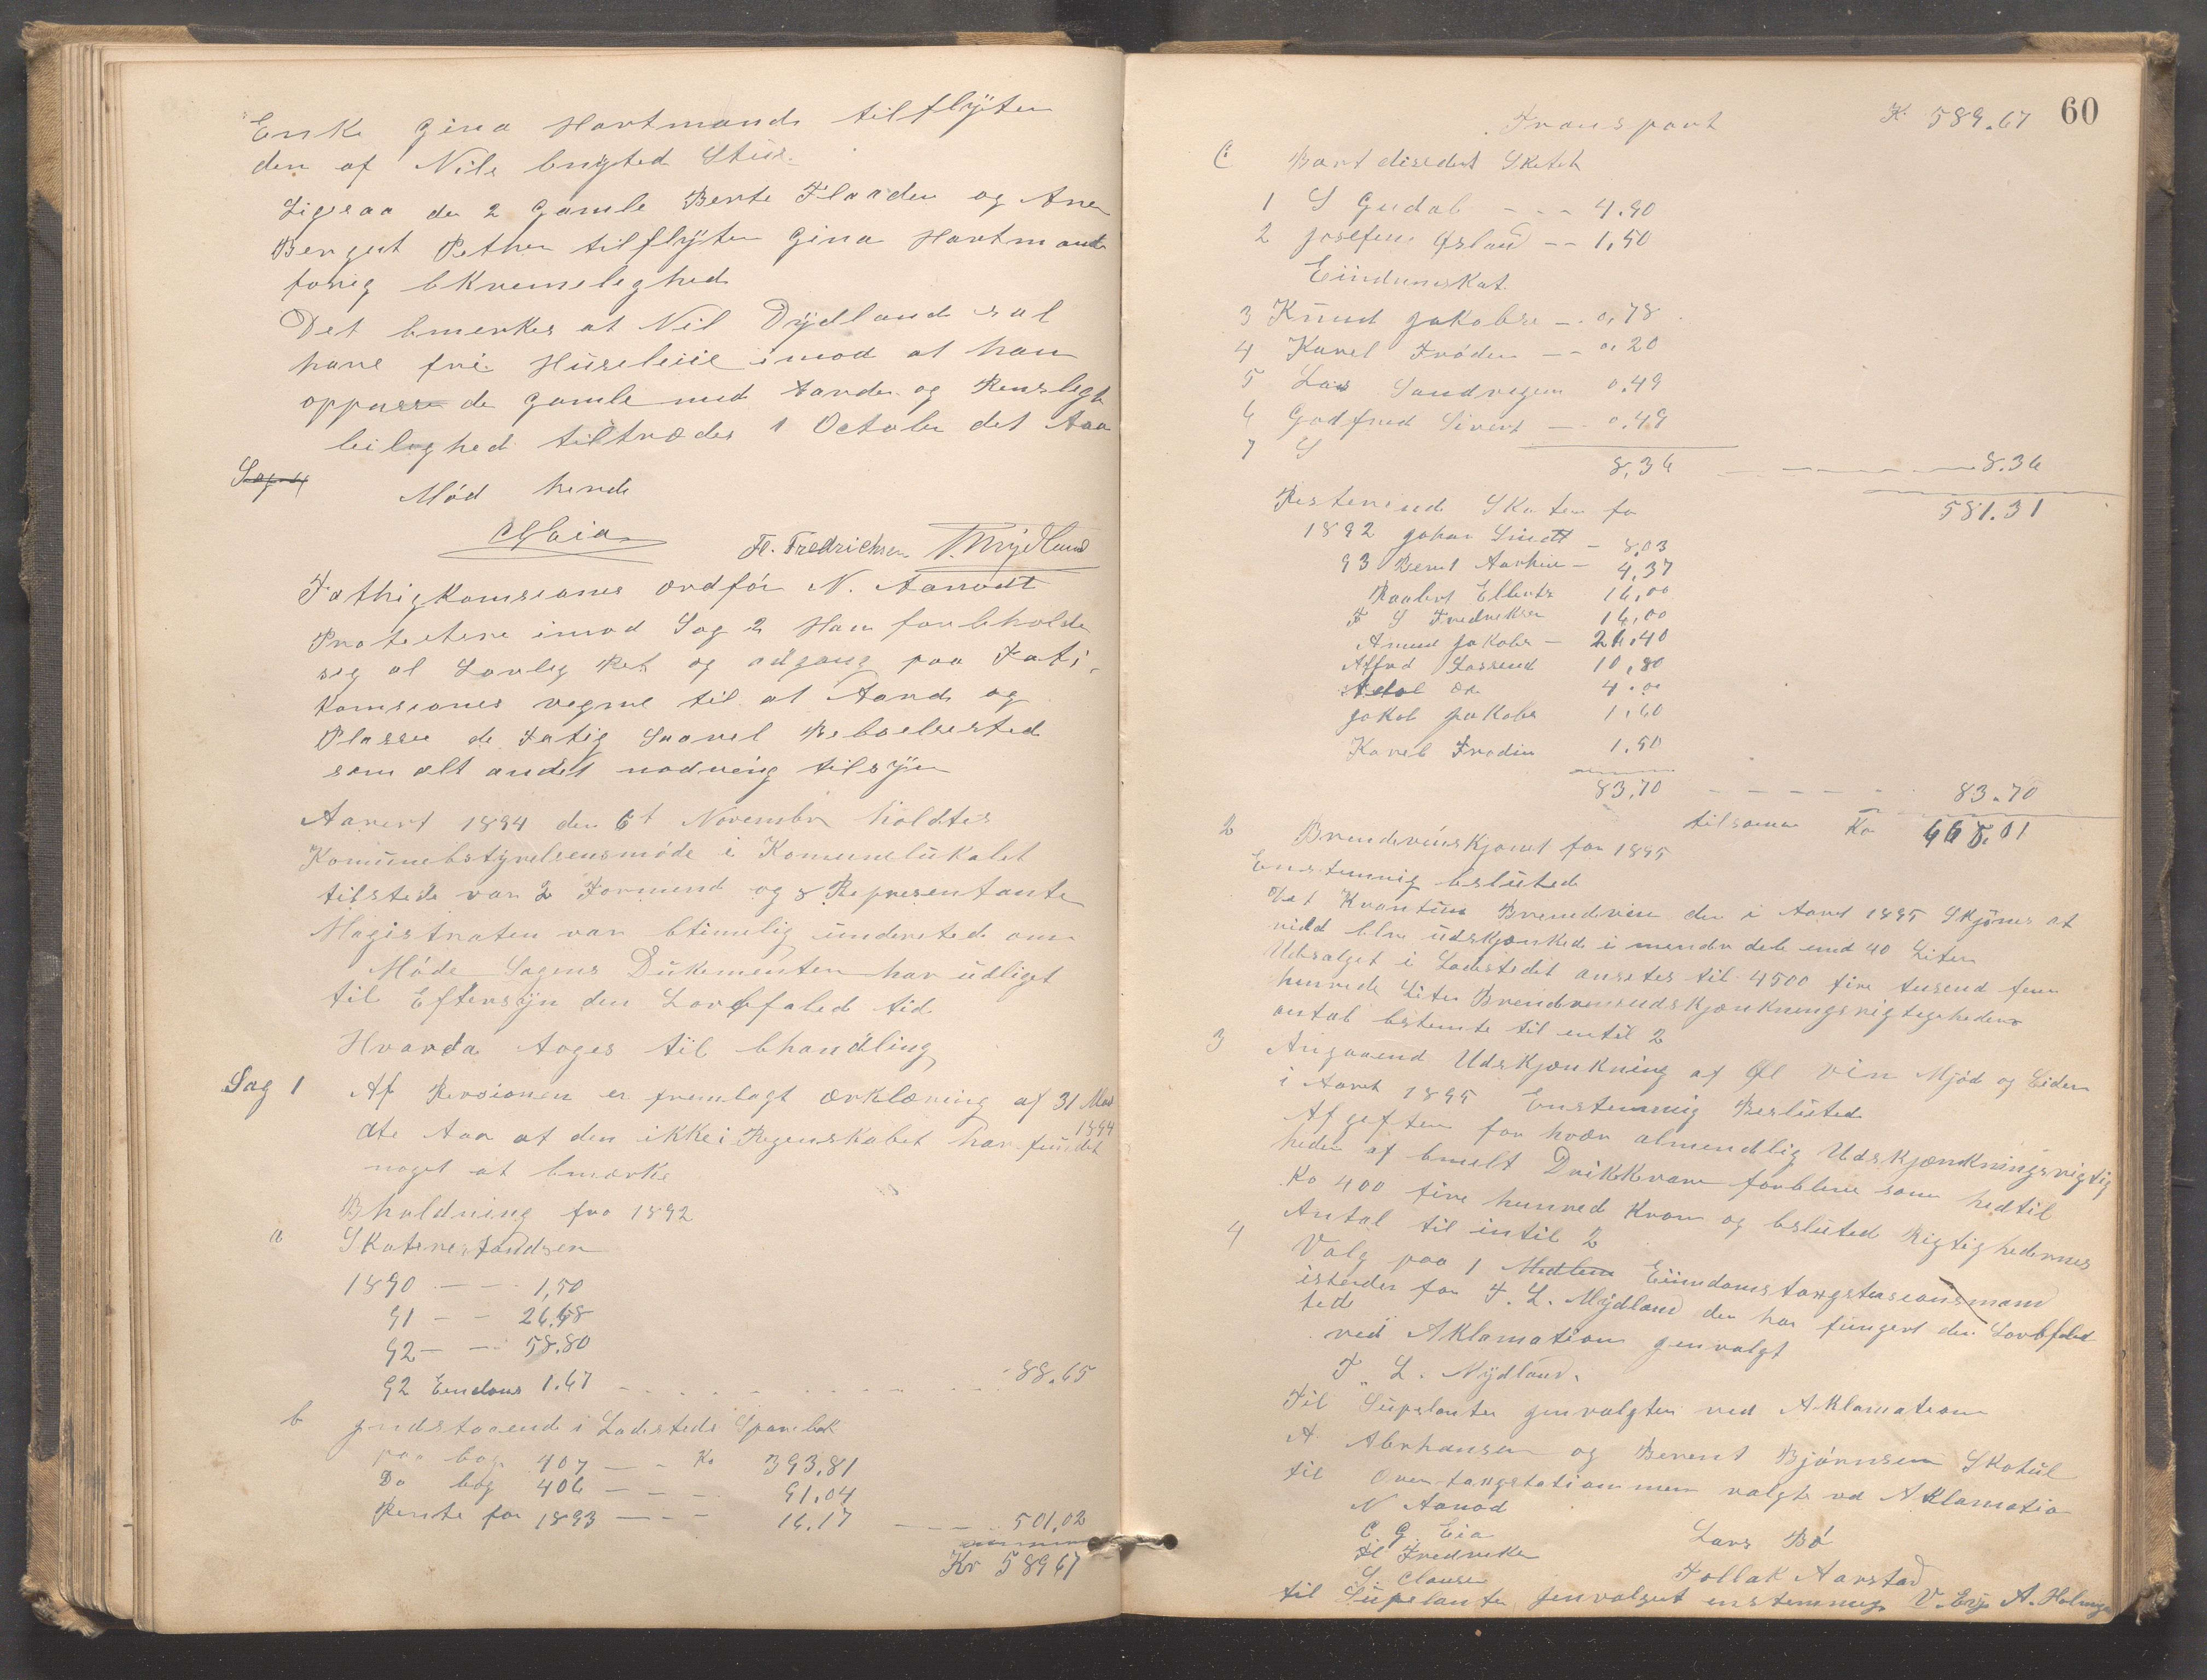 Enke Gina Hartmands tilflÿter
den af Nils bugted Stue.
Ligesaa de 2 Gamle Berte Flaaden og Ane
Bergert Pethre tilflÿter Gina Hartmands
forrig bkvemeleghed
Det bmerkes at Nil Dÿdland sal
have fri Hüseleiie imod at han
oppasse de Gamle med Varde og Renslighe
leileghed tiltrædes 1 Octobr det Aar
Sag 4
Mød hevede
CGEia Fl. Fredrichsen T. Mydland
Fathigkomsiones ordfør N. Aanodt
Protestere imod Sag 2 Han forbeholde
sig al Lovleg Ret og adgang paa Fati-
komsiones vegne til at Aand og
Plasse de Fatig Saavel Beboelsested
som alt andet nødvenig tilsÿn
Aaret 1894 den 6t Novembr holdtes
Komünebstÿrelsensmøde i Komunelukalet
tilstede var 2 Formend og 8 Representante
Magistraten var btimelig ünderetede om
Møde Sagens Dükementer har üdliget
til Eftersÿn den Lovbfaled tid
Hvorda toges til bhandling
Sag 1 Af Revsionen er fremlagt ærklæring af 31 Mai
1894
dte Aar at den ikke i Regenskabet har fündet
noget at bmærke
Bholdning fra 1892
a Skaterestandsen
1890 — — 1,50
91 — — 26.68
92 — — 58.80
92 Eendoms 1.67 — — — 88.65
b jndstaaende i Ladesteds Sparebak
paa bog 407 — — Kr 393,81
Do bog 406 — — — 91.04
Rente for 1893 — — — 16.17 — — — 501,02
Kr 589 67
60
Transport K 589.67
C Bort diseden Skateh
1 S Gudal - - - 4.90
2 Josefine Øsland — — 1,50
Eiindumskat
3 Knud Jakobse — 0,78
4 Karel Frøden — — 0.20
5 Lars Sandvegen 0.49
6 Godfred Sivert — 0.49
7 S
8,36 — — — 8.36
581.31
Resterend Skater for
1892 Johan Sindt — 8,03
93 Bernt Aarhin — 4,37
Raabert Elberts 16,00
F S Fredriksen 16,00
Amund Jakobs — 21,40
Alfred Lassend 10,80
Adol Do 4.00
Jakob Jakobs 1,60
Karel Frodin 1.50
83,70 — — — — — 83.70
tilsamen Kr 665,01
2 Brendevinskjænk for 1895
Enstemmig bslüted
Det Kvantüm Brendevin der i Aaret 1895 Skjønes at
vild blve üdskjænked i mendr dele end 40 Liter
Udsalget i Ladestedet ansetes til 4500 fire tusend fem
hunrede Liter Brendvinsudskjænkningsrigtegheders
antal bstemte til entil 2
3 Angaaend Udskjænkning af Øl Vin Mjød og Eider
i Aaret 1895 Enstemmig Beslüted
Afgeften for hvær almendlig Udskjænkningsrigtig
heder af bmelt Drikkvare forblive som hedtil
Kr 400 fire hunred Kron og bslüted Rigtighedernes
Antal til intil 2
4 Valg paa 1 Medlem Eiindomstaxgstasionsmand
istedes for T. L. Mÿdland der har füngert den Lovbfaled
tid
ved Aklamation genvalgt
T. L. Mÿdland.
Til Süpelanter genvalgter ved Aklamation
A Abrhansen og Berent Bjørnsen Skotül
til Overtaxgstationmen valgte ved Aklamatio
N Aanod
C. G. Eia Lars Bø
Fl Fredreksen
S. Clausen Tollak Aarstad
til Süpelanter Jenvalget enstemmig V. Eÿe A. Holmgr